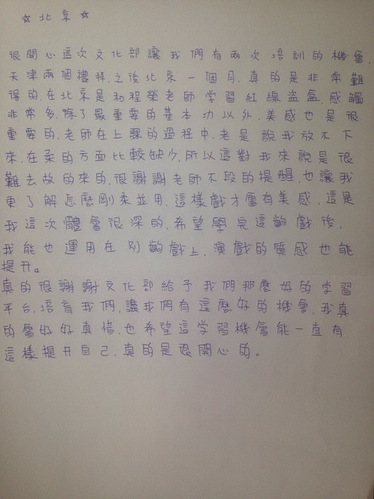 ☆北京☆
很開心這次文化部讓我們有兩次培訓的機會
天津兩個禮拜之後北京一個月,真的是非常難
得的在北京是和程榮老師學習紅線盜盒感觸
非常多,除了最重要的基本功以外,美感也是很
重要的,老師在上課的過程中,老是說我放不下
來,在柔的方面比較缺少,所以這對我來說是很
難去放的來的,很謝謝老師不段的提醒,也讓我
更了解怎麼剛柔並用,這樣戲才會有美感,這是
我這次體會很深的,希望學完這齣戲後,
我能也運用在別齣戲上,演戲的質感也能
提升。
真的很謝謝文化部給予我們那麼好的學習
平台,培育我們,讓我們有這麼好的機會,我真
的會好好真惜,也希望這學習機會能一直有
這樣提升自己,真的是很開心的。